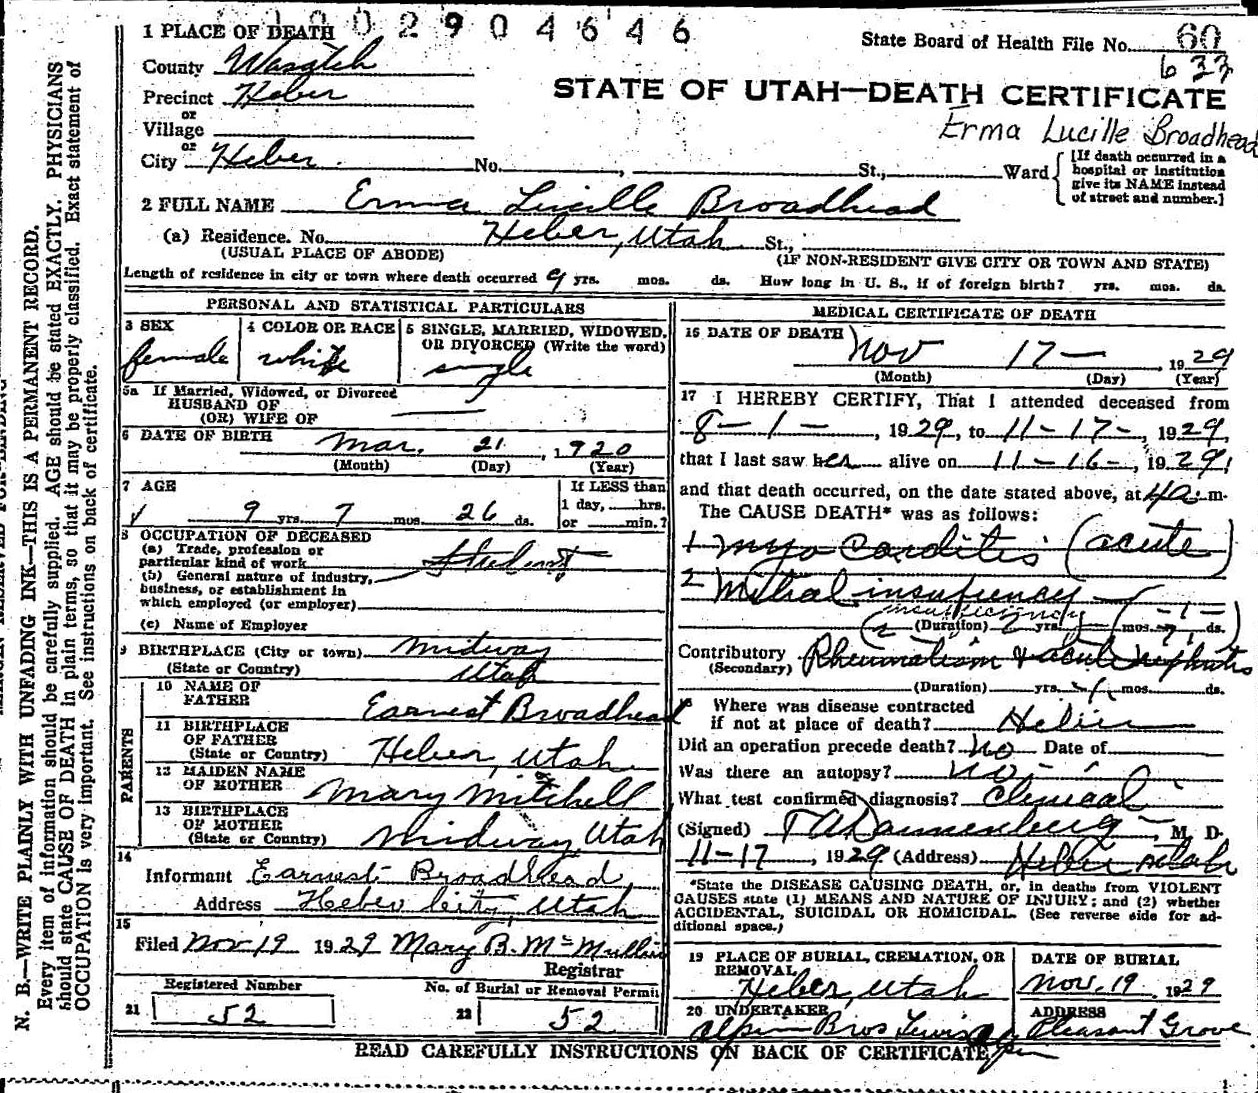 0 0 2 9 0 4 6 4 6
1 PLACE OF DEATH
State Board of Health File No. 60
633
County Wasatch
Precinct Heber
or
Village
or
City Heber. No. , St., Ward
STATE OF UTAH—DEATH CERTIFICATE
Erma Lucille Broadhead
[If death occurred in a
hospital or institution
give its NAME instead
of street and number.]
2 FULL NAME Erma Lucille Broadhead
(a) Residence. No. Heber, Utah St.,
(USUAL PLACE OF ABODE) (IF NON-RESIDENT GIVE CITY OR TOWN AND STATE)
Length of residence in city or town where death occurred 9 yrs. mos. ds. How long in U. S., if of foreign birth? yrs. mos. ds.
PERSONAL AND STATISTICAL PARTICULARS
3 SEX
female
4 COLOR OR RACE
white
5 SINGLE, MARRIED, WIDOWED,
OR DIVORCED (Write the word)
single
5a If Married, Widowed, or Divorced
HUSBAND OF
(OR) WIFE OF
6 DATE OF BIRTH Mar. 21, 1920
(Month) (Day) (Year)
7 AGE
9 yrs. 7 mos. 26 ds.
If LESS than
1 day, hrs.
or min.?
8 OCCUPATION OF DECEASED
(a) Trade, profession or
particular kind of work Student
(b) General nature of industry,
business, or establishment in
which employed (or employer)
(c) Name of Employer
9 BIRTHPLACE (City or town) Midway
(State or Country) Utah
PARENTS
10 NAME OF
FATHER Earnest Broadhead
11 BIRTHPLACE
OF FATHER
(State or Country) Heber, Utah
12 MAIDEN NAME
OF MOTHER Mary Mitchell
13 BIRTHPLACE
OF MOTHER
(State or Country) Midway, Utah
14
Informant Earnest Broadhead
Address Heber City, Utah
15
Filed Nov 19 1929 Mary B. McMullin
Registrar
Registered Number
21 52
No. of Burial or Removal Permit
22 52
MEDICAL CERTIFICATE OF DEATH
16 DATE OF DEATH Nov 17— 1929
(Month) (Day) (Year)
17 I HEREBY CERTIFY, That I attended deceased from
8-1-, 1929, to 11-17-, 1929,
that I last saw her alive on 11-16-, 1929,
and that death occurred, on the date stated above, at 4 a. m.
The CAUSE DEATH* was as follows:
1 Myo Carditis (acute)
2 Mithal insufiency
insufficiency
(Duration) yrs. mos. ds.
Contributory Rheumatism & acute nephritis
(Secondary)
(Duration) yrs. mos. ds.
Where was disease contracted
if not at place of death? Heber
Did an operation precede death? No Date of
Was there an autopsy? No
What test confirmed diagnosis? Clinical
(Signed) Dannenberg M. D.
11-17, 1929 (Address) Heber Utah
*State the DISEASE CAUSING DEATH, or, in deaths from VIOLENT
CAUSES state (1) MEANS AND NATURE OF INJURY; and (2) whether
ACCIDENTAL, SUICIDAL OR HOMICIDAL. (See reverse side for ad-
ditional space.)
19 PLACE OF BURIAL, CREMATION, OR
REMOVAL
Heber, Utah
DATE OF BURIAL
Nov. 19 1929
20 UNDERTAKER
Bros
ADDRESS
Pleasant Grove
READ CAREFULLY INSTRUCTIONS ON BACK OF CERTIFICATE
N. B.—WRITE PLAINLY WITH UNFADING INK—THIS IS A PERMANENT RECORD.
Every item of information should be carefully supplied. AGE should be stated EXACTLY. PHYSICIANS
should state CAUSE OF DEATH in plain terms, so that it may be properly classified. Exact statement of
OCCUPATION is very important. See instructions on back of certificate.